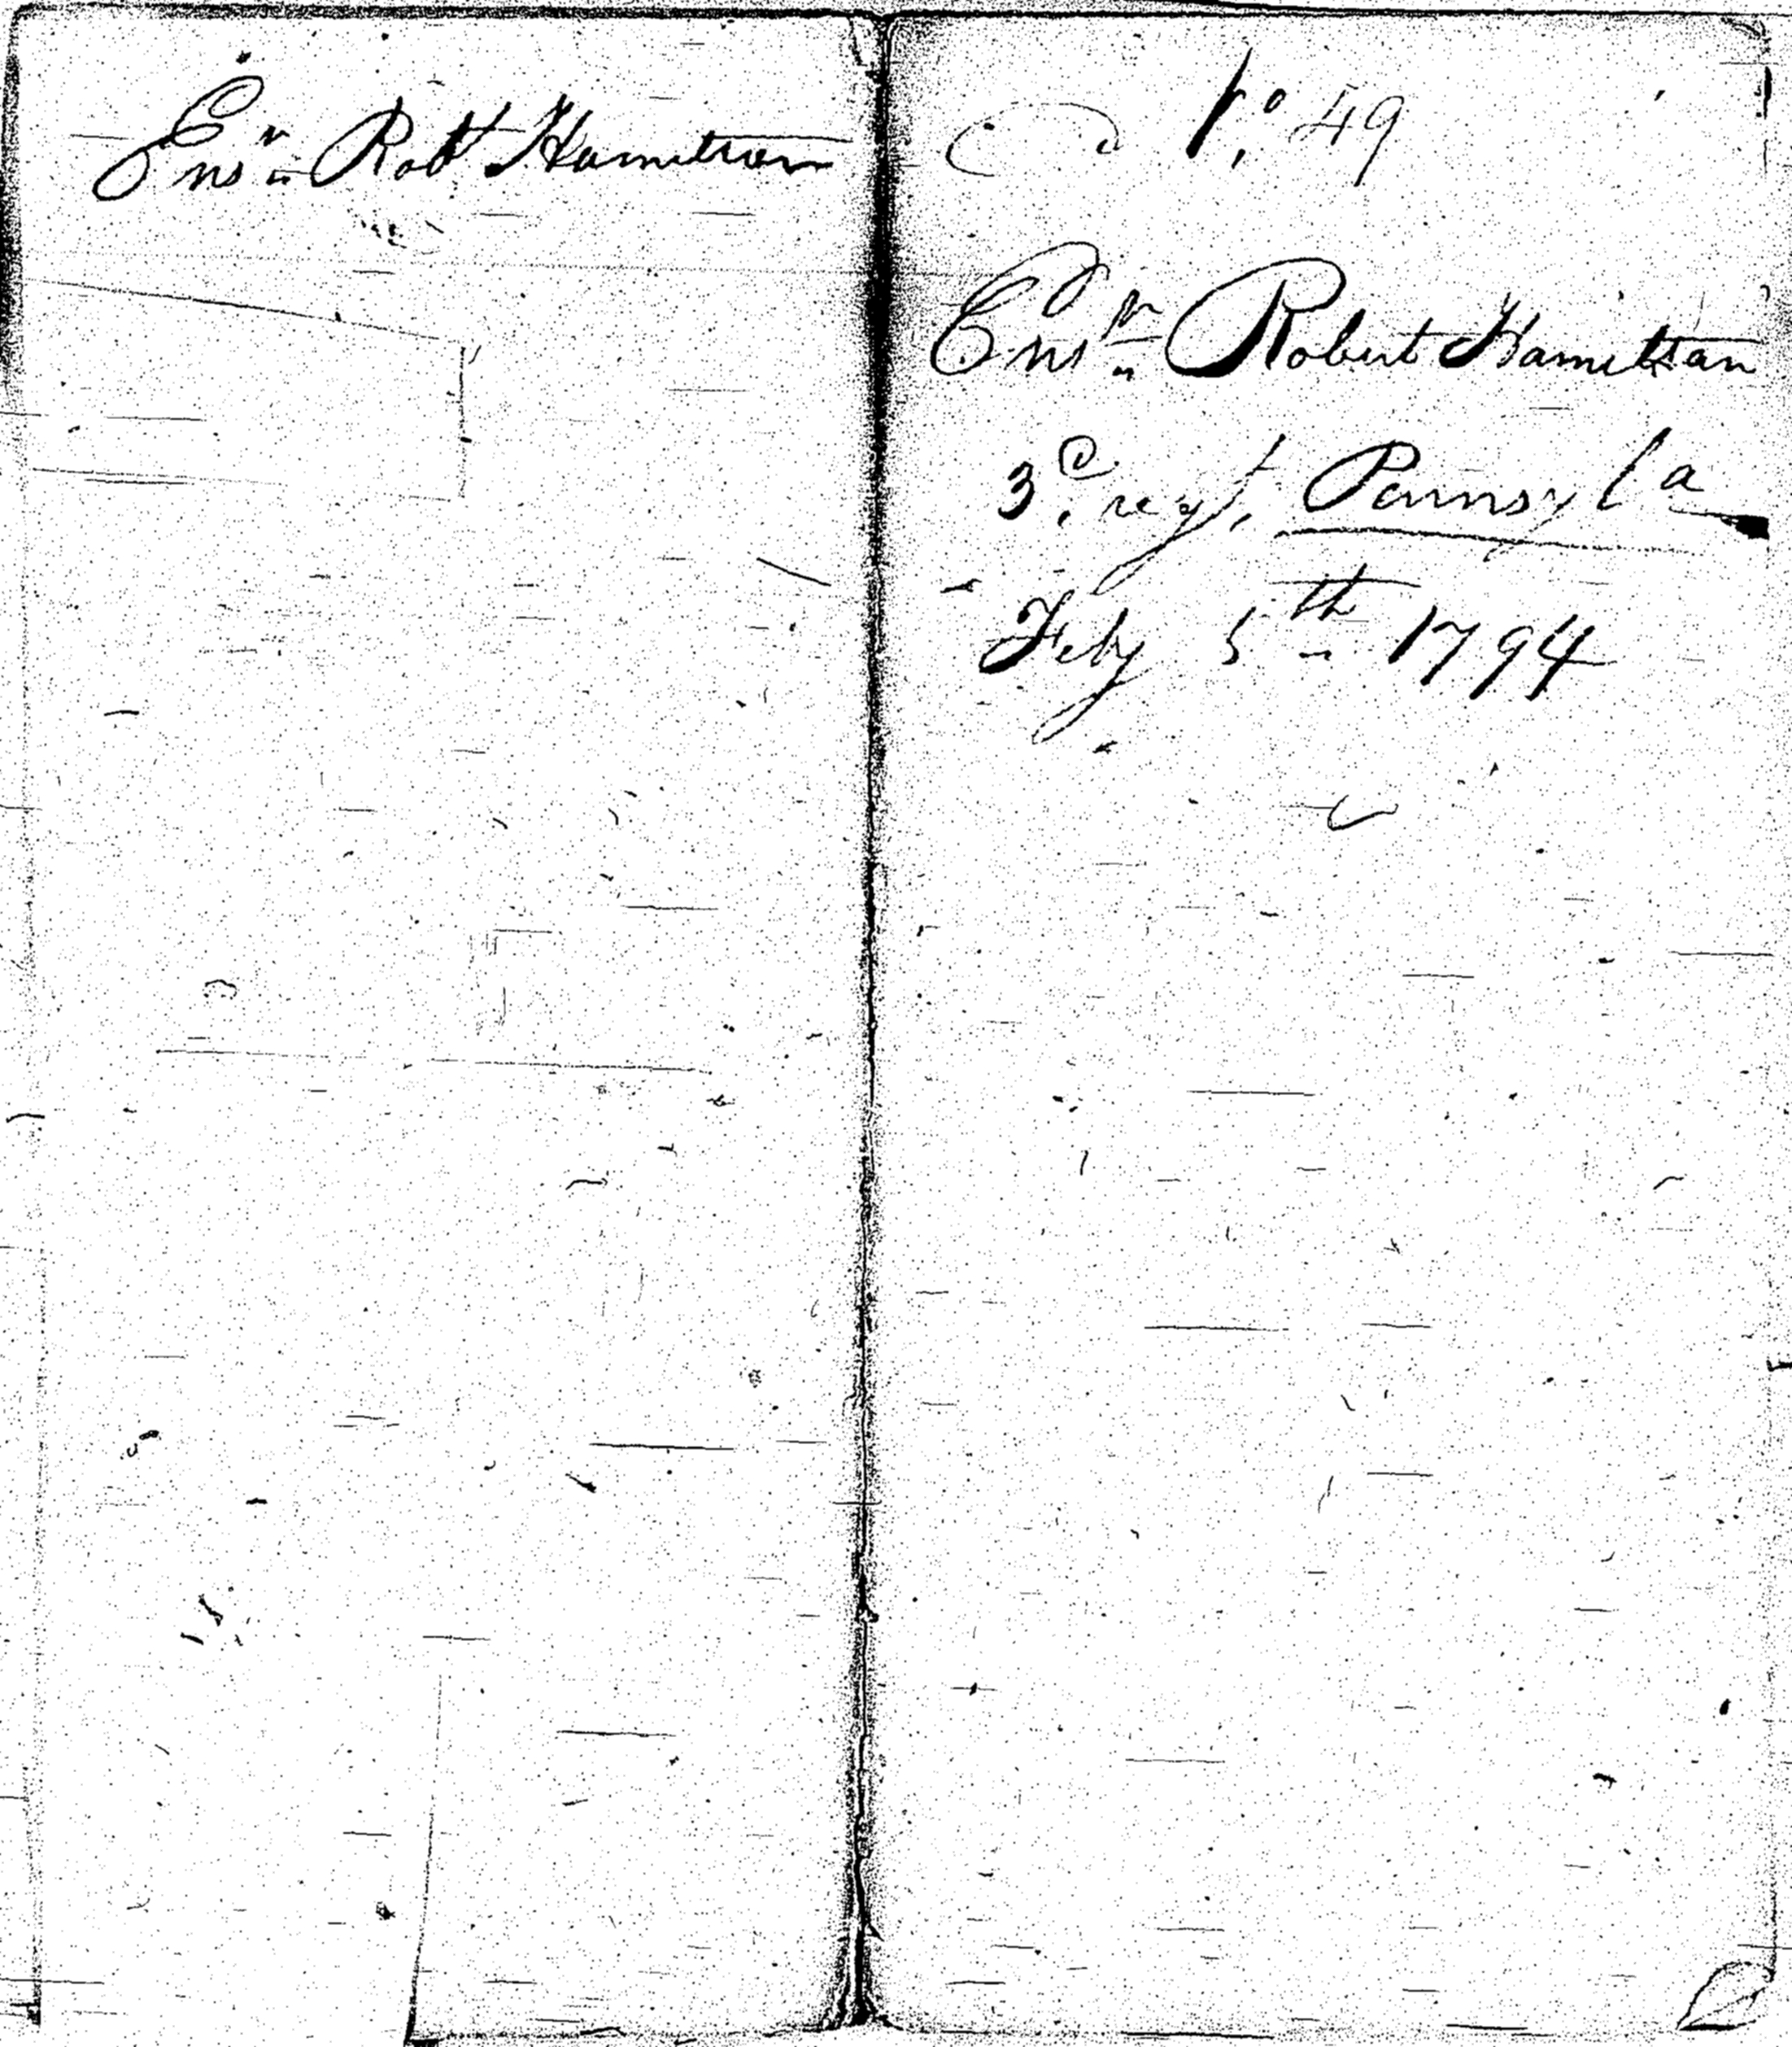 Ensn Robt Hamilton
No 49
Ensn Robert Hamiltan
3d regt. Pennsyla
Feby 5th 1794